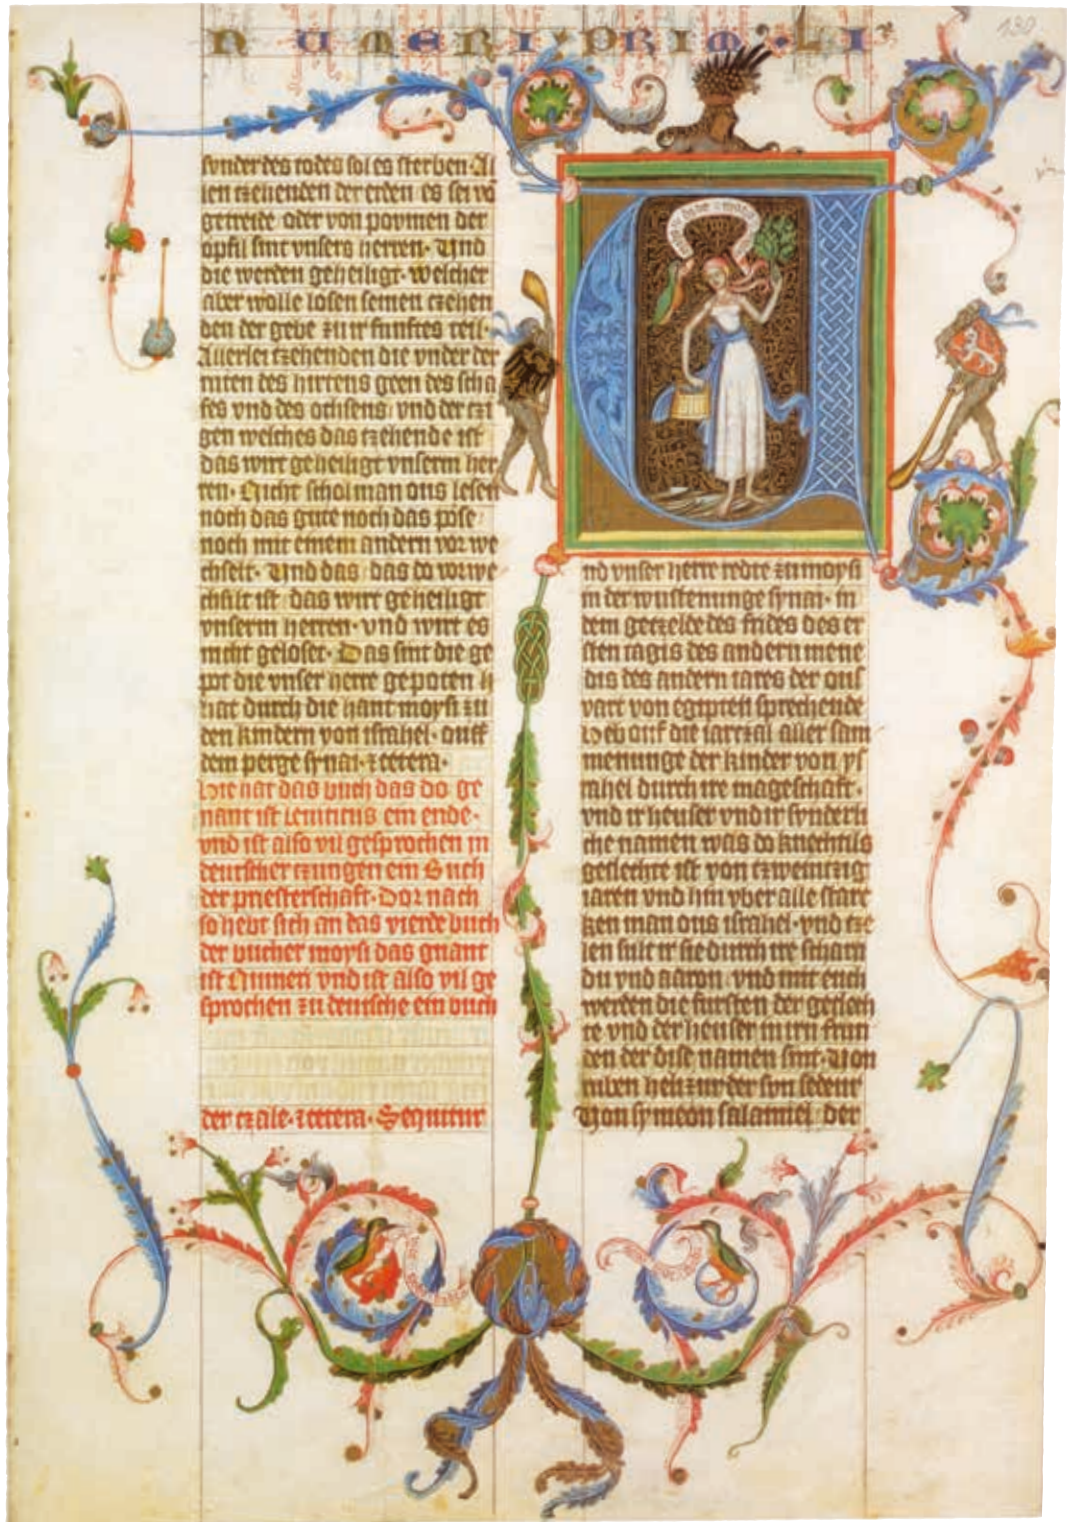 NUMERI · PRIM · LI
130
sunder des todes sol es sterben · Al
len czehenden der erden es sei vo
getreide oder von poymen der
opfil sint vnsers herren · Vnd
die werden geheiligt · welcher
aber wolle losen seinen czehen
den der gebe zu ir funftes teil ·
Allerlei czehenden die vnder der
ruten des hirtens geen des scha
fes vnd des ochsens vnd der czi
gen welches das czehende ist
das wirt geheiligt vnserm her
ren · Nicht schol man aus lesen
noch das gute noch das pose
noch mit einem andern vor we
chselt · Vnd das das do vorwe
chselt ist das wirt geheiligt
vnserm herren · vnd wirt es
nicht geloset · Das sint die ge
pot die vnser herre gepoten
hat durch die hant moysi zu
den kindern von israhel · auff
dem perge synai · zcetera ·
Hie hat das buch das do ge
nant ist Leuiticus ein ende ·
vnd ist also vil gesprochen in
deutscher czungen ein Buch
der priesterschaft · Dor nach
so hebt sich an das vierde buch
der bucher moysi das gnant
ist Numeri vnd ist also vil ge
sprochen zu deutsche ein buch
der czale · zcetera · Sequitur
U
nd vnser herre redte zu moysi
in der wustenunge synai · in
dem geczelde des frides des er
sten tagis des andern mene
dis des andern iares der aus
vart von egipten sprechende
Heb auf die iarczal aller sam
menunge der kinder von ys
rahel durch ire mageschaft ·
vnd ir heuser vnd ir synderli
che namen was do knechtils
geslechte ist von czweinczig
iaren vnd hin vber alle star
ken man aus israhel · vnd cze
len sult ir sie durch ire scharn
du vnd aaron vnd mit euch
werden die fursten der geslech
te vnd der heuser in irn frun
den der dise namen sint · Von
ruben helizur der sun sedeur
Von symeon salamiel der